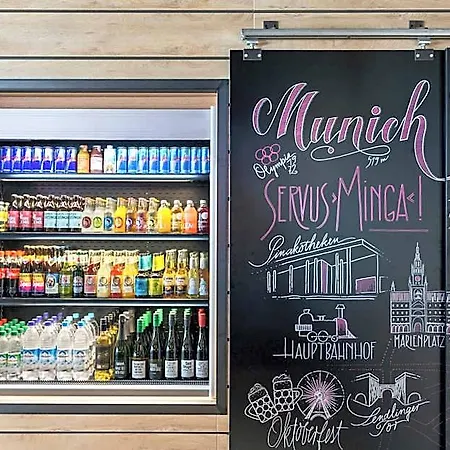 Munich
519 m
Olympia
72
SERVUS›MINGA‹!
Pinakotheken
HAUPTBAHNHOF
MARIENPLATZ
Oktoberfest
Sendlinger
Tor